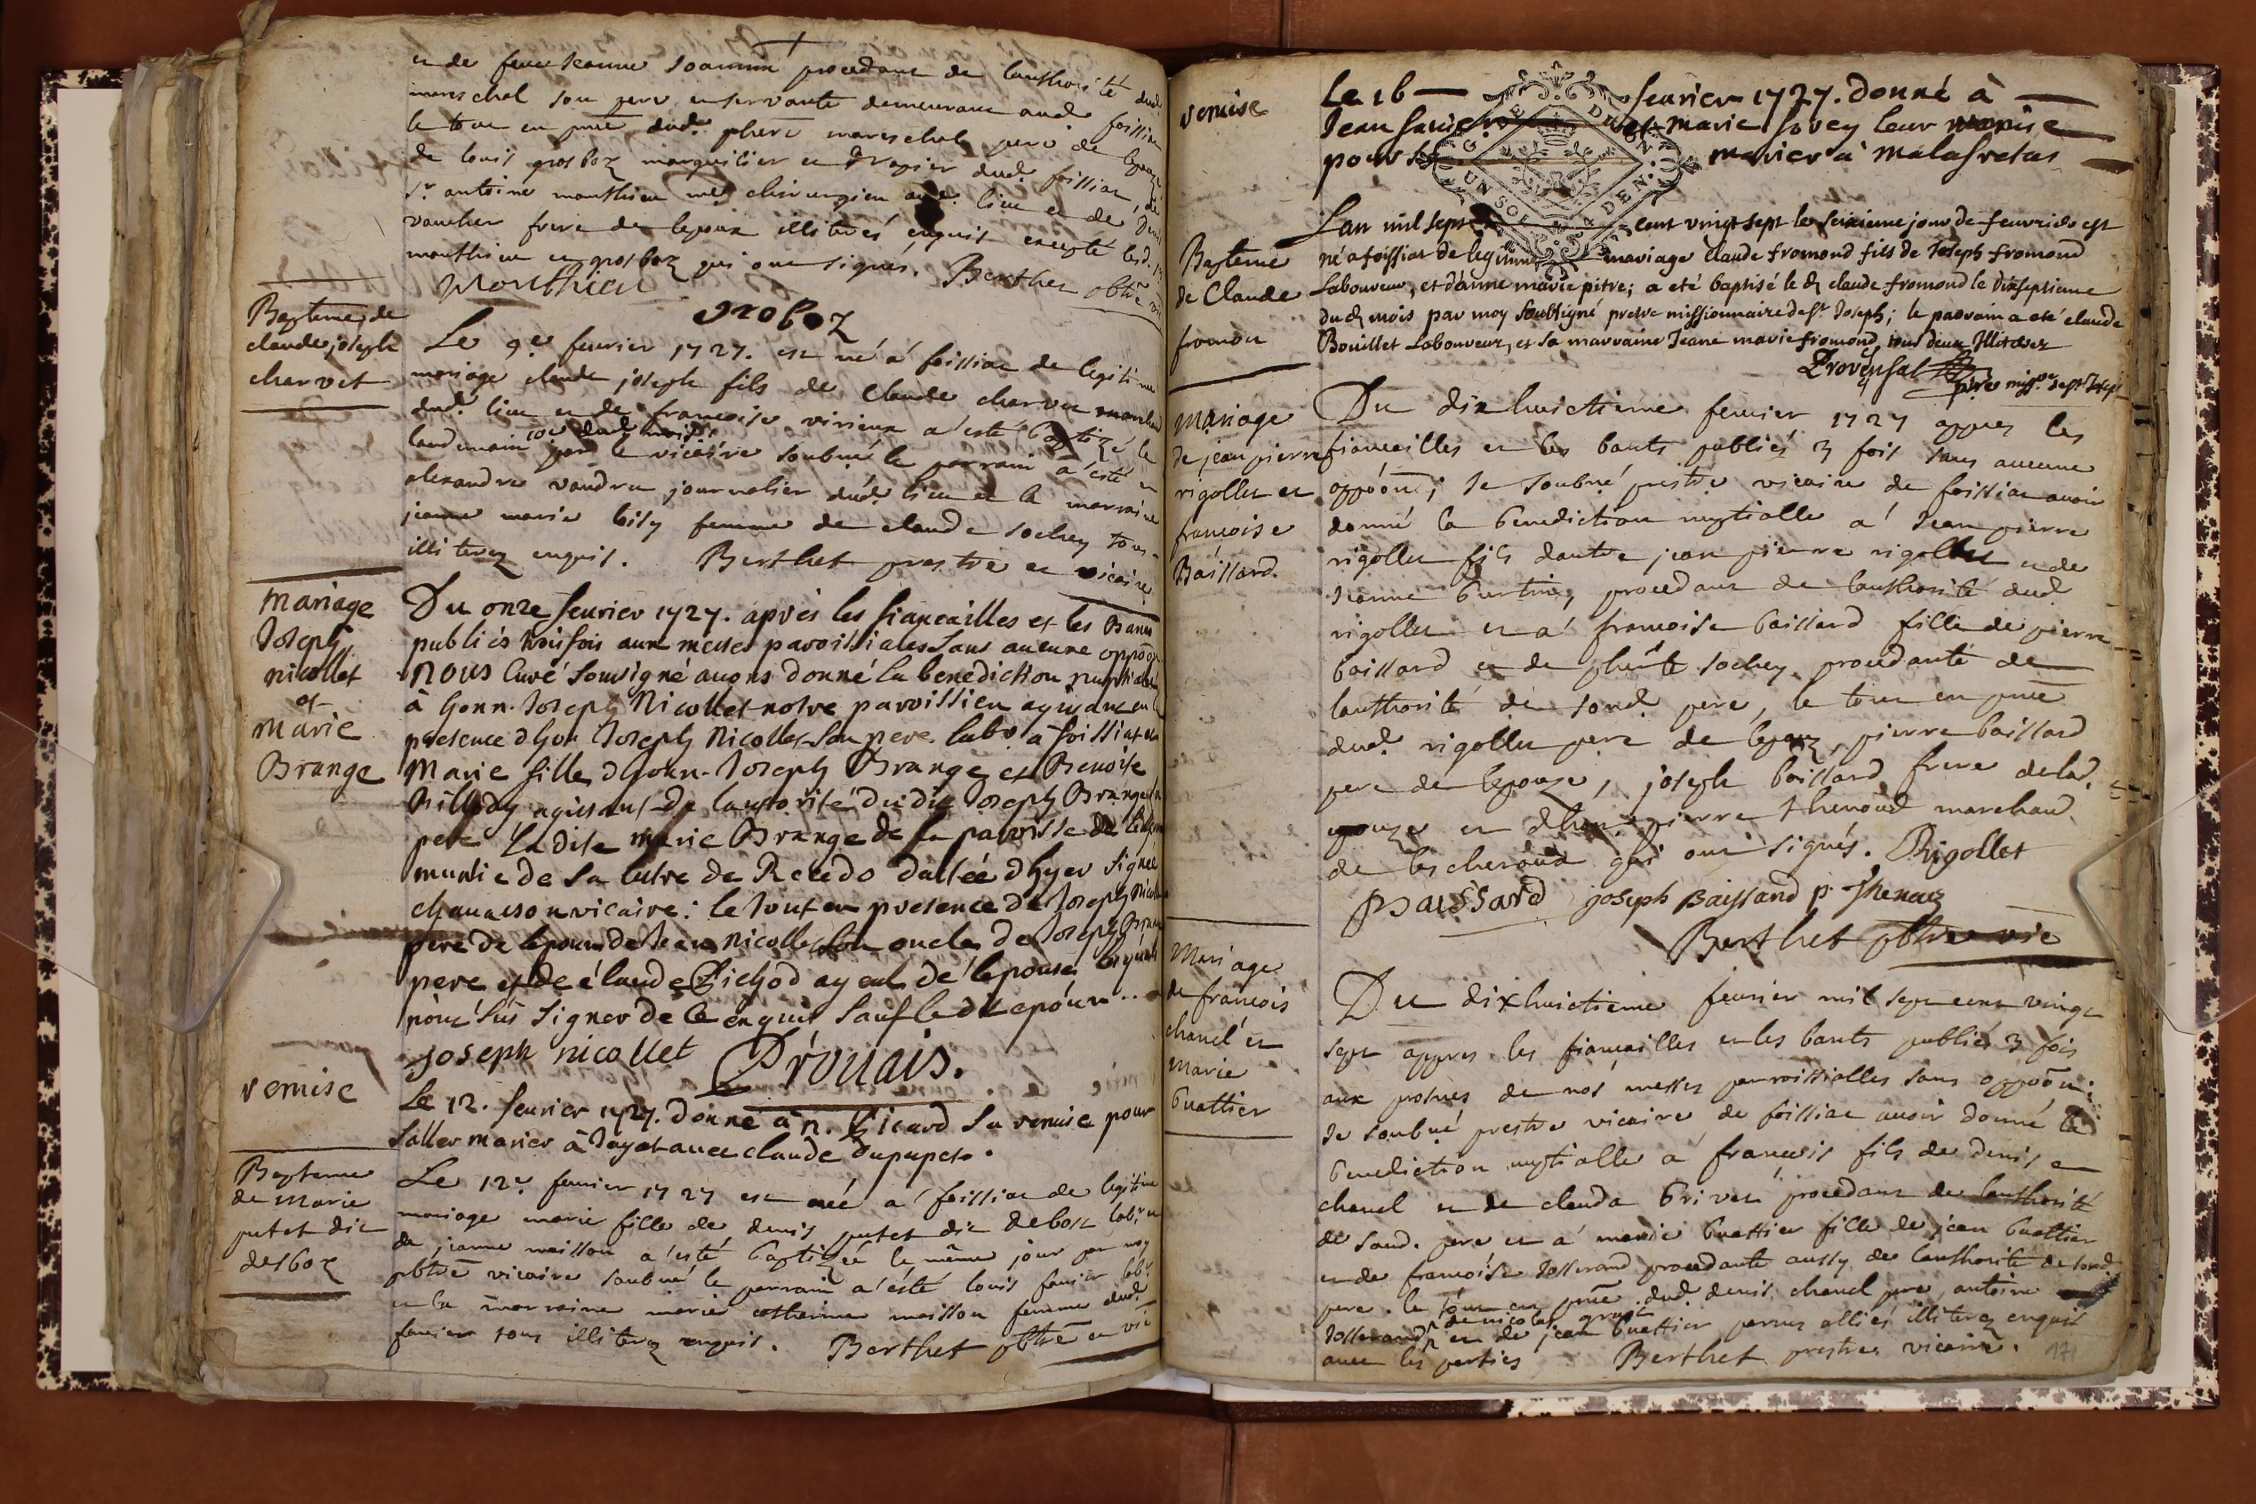 et de feue Jeanne Joannin procedant de lauthorité dud
mareschal son pere en servante demeurant aud foissiat
le tout en pnce dud phert mareschal pere de lepouze
de louis grosboz marguilier et drapier dud foissiat, de
Sr antoine monthieu me chirurgien aud lieu et de denis
vaucher frere de lepoux illiterés enquis excepté lesd. Srs
monthieu et grosboz qui ont signés. Berthet pbtre vic
Monthieu
groboz
Bapteme de
claude joseph
charvet
Le 9e feuvrier 1727. est né a foissiat de legitime
mariage claude joseph fils de claude charvet marchand
dud. lieu et de francoise virieux a esté baptizé le
landemain 10e dud mois par le vicaire soubné le parrain a esté
alexandre vaudru journalier dud. lieu et la marraine
jeanne marie bily femme de claude sochey tous
illiterez enquis. Berthet prestre et vicaire
Mariage
Joseph
nicollet
et
Marie
Brange
Du onze feurier 1727. après les fiancailles et les Bancs
publiés trois fois aux messes paroissiales sans aucune oppoon
nous Curé soussigné auons donné la benediction nuptiale
à honn. Joseph Nicollet notre paroissien agissant en la
presence dhon Joseph Nicollet son pere labr à foissiat et a
Marie fille dhonn. Joseph Brange et Benoite
agissant de lautorité dudit Joseph Brange son
pere Ladite marie Brange de la paroisse de
munie de sa lettre de Recedo dattée dhyer signée
chanasson vicaire: le tout en presence de Joseph Nicollet
pere de lepoux de Jean Nicollet son oncle de Joseph Brange
pere et de claude Pichod ayeul de lepouse lesquels
nont sus signer de ce enquis sauf ledit epoux..
joseph nicollet Prouais.
remise
Le 12. feurier 1727. donné à n. Picard sa remise pour
saller marier à Jayat auec claude Dupupet.
Bapteme
de Marie
putet dit
desboz
Le 12e feuvrier 1727 est née a foissiat de legitime
mariage marie fille de denis putet dit debost labr et
de jeanne maisson a esté baptizée le même jour par moy
pbtre vicaire soubné le parrain a esté louis favier labr
et la marraine marie catherine maisson femme dud
favier tous illiterez enquis. Berthet pbtre et vic
remise
Le 16 feurier 1727. donné à
Jean et Marie Sovey leur remise
pour se marier à Malafretas
G DE DIJON
UN SOL 4 DEN.
Bapteme
de Claude
fromon
Lan mil sept cent vingt sept le seizieme jour de feuvrier est
né a foissiat de legitime mariage claude fromond fils de Joseph fromond
Laboureur, et danne marie pitre; a eté baptisé le d claude fromond le dixseptieme
dud mois par moy soubsigné pretre missionnaire de st Joseph; le parrain a eté claude
Bouillet Laboureur, et sa marraine Jeane marie fromond, tous deux Illiterez
Provensal ptre missre de st Joseph
Mariage
de jean pierre
rigollet et
francoise
Baissard.
Du dixhuictieme feuvrier 1727 appres les
fiancailles et les bants publiés 3 fois sans aucune
oppoon; Je soubné prestre vicaire de foissiat avoir
donné la benediction nuptialle a Jean pierre
rigollet fils dautre jean pierre rigollet et de
Jeanne burtin, procedant de lauthorité dud
rigollet et a francoise baissard fille de pierre
baissard et de phterte sochey procedante de
lauthorité de sond pere, le tout en pnce
dud rigollet pere de lepoux, pierre baissard
pere de lepouze, joseph baissard frere de lad.
epouze et dhon. pierre thenoud marchand
de lescheroux qui ont signés. Rigollet
P Baissard joseph Baissard p. Thenoz
Berthet pbtre vic
Mariage
de francois
chanel et
Marie
buattier
Du dixhuictieme feuvrier mil sept cent vingt
sept appres les fiancailles et les bants publiés 3 fois
aux prosnes de nos messes parroissialles sans oppoon;
Je soubné prestre vicaire de foissiat avoir donné la
benediction nuptialle a francois fils de denis
chanel et de clauda brivet procedant de lauthorité
de sond. pere et a marie buattier fille de jean buattier
et de francoise Josserand procedante aussy de lauthorité de sond.
pere. le tout en pnce dud denis chanel pere, antoine
Josserand, de nicolas et de jean buattier parens alliés illiterez enquis
avec les parties Berthet prestre vicaire.
171